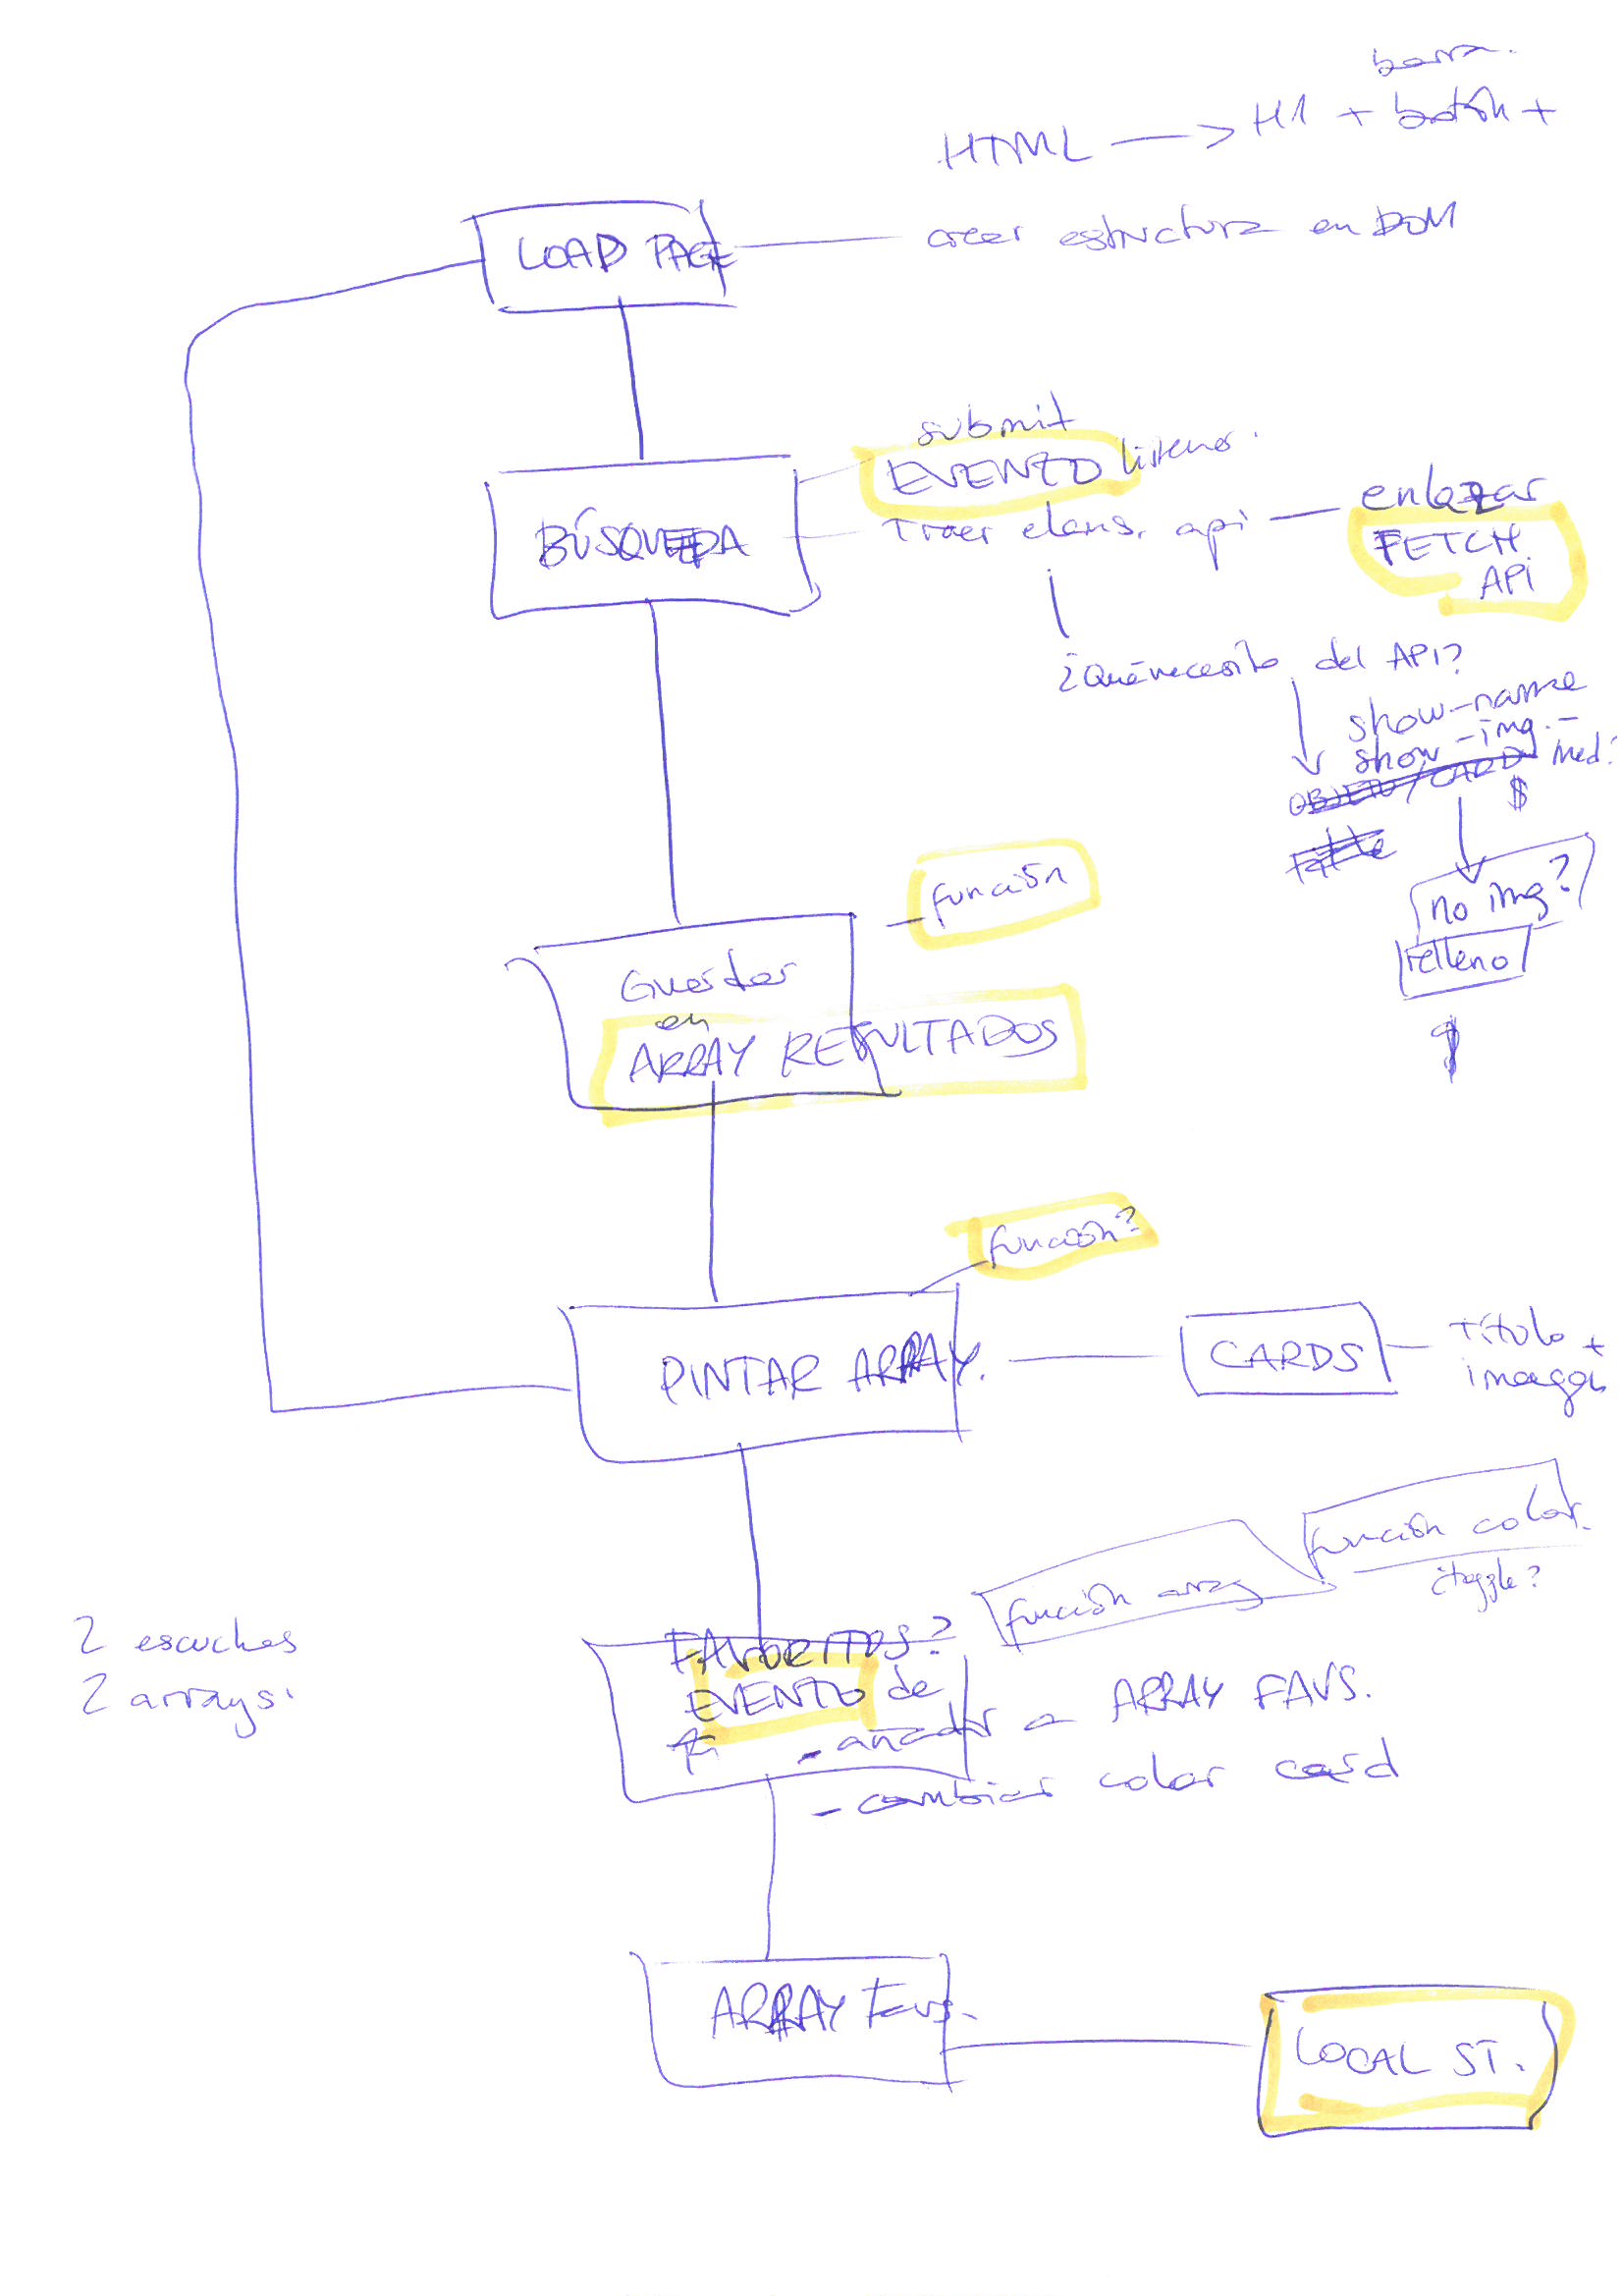 barra.
HTML → H1 + botón +
LOAD PAGE
crear estructura en DOM
submit
EVENTO listener.
BÚSQUEDA
Traer elems. api — enlazar
FETCH
API
¿Qué necesito del API?
show-name
show-img.-
med?
OBJETO/CARD
$
no img?
relleno
función
Guardar
en
ARRAY RESULTADOS
función?
PINTAR ARRAY.
CARDS
Título +
imagen
función color.
¿toggle?
función array
2 escuchas
2 arrays.
FAVORITOS?
EVENTO de
- añadir a ARRAY FAVS.
- cambiar color card
ARRAY Favs.
LOCAL ST.